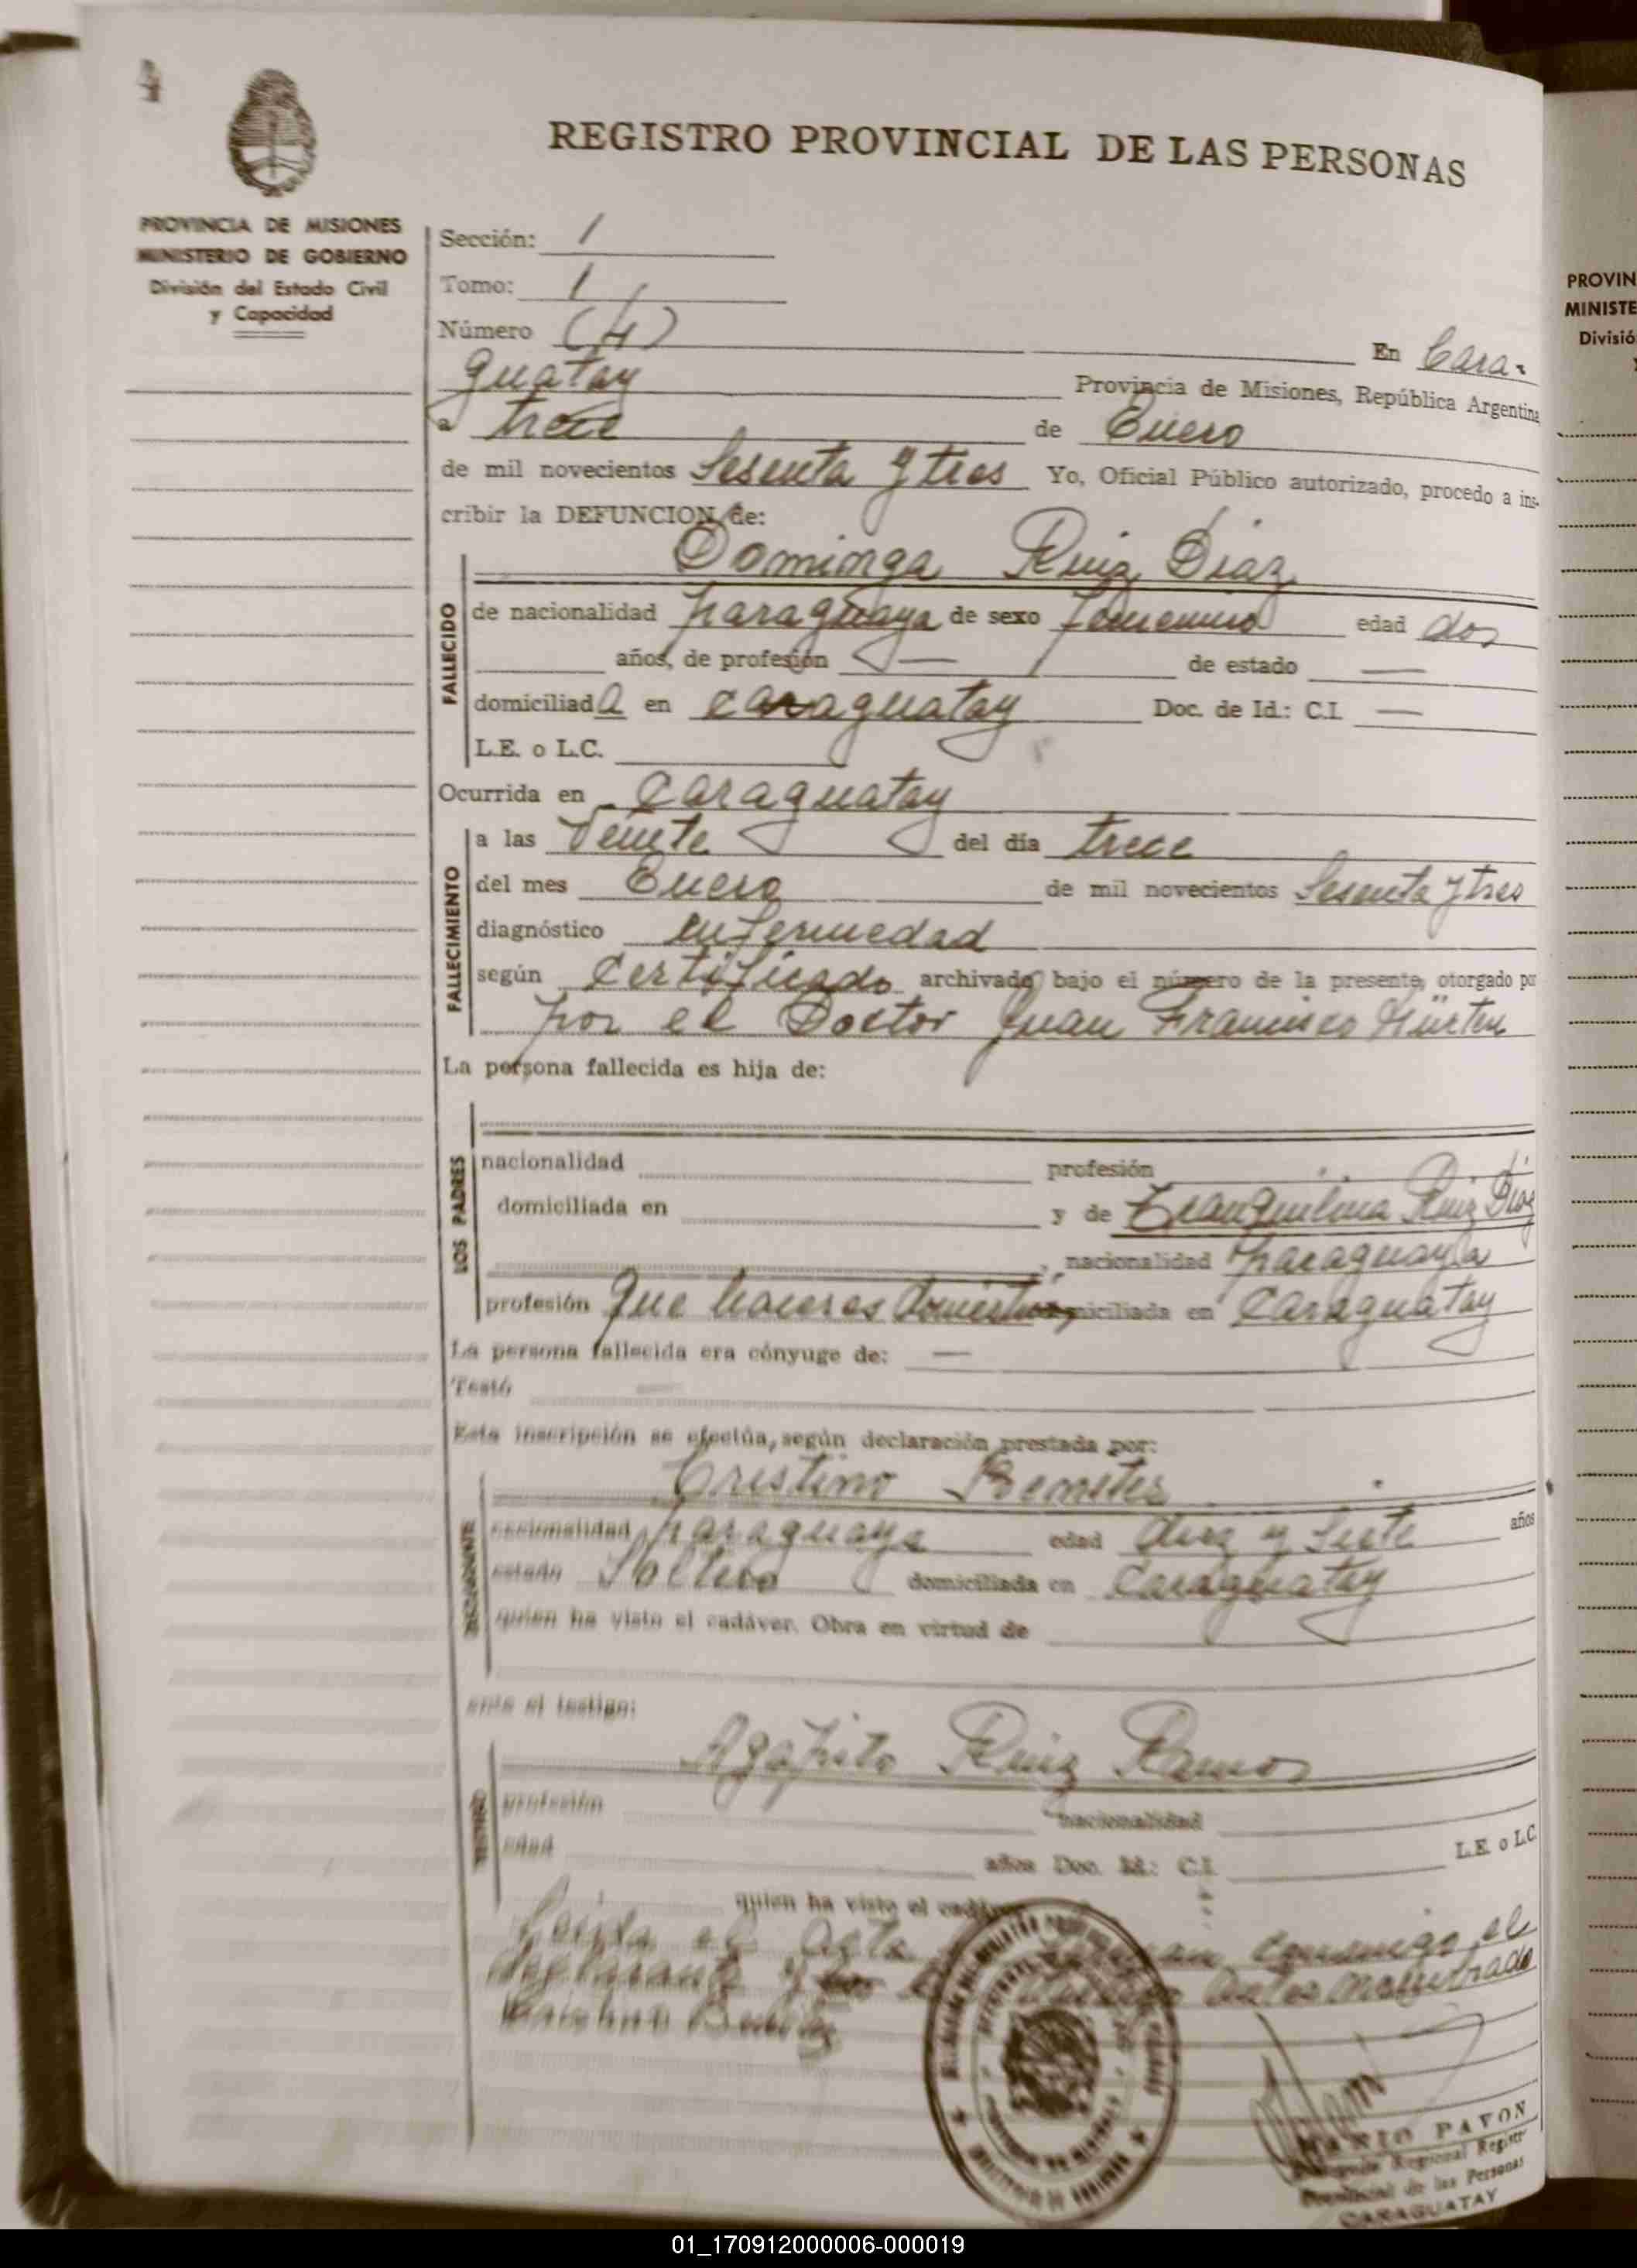 4
REGISTRO PROVINCIAL DE LAS PERSONAS
PROVINCIA DE MISIONES
MINISTERIO DE GOBIERNO
División del Estado Civil
y Capacidad
Sección: 1
Tomo: 1
Número (4) En Cara-
guatay Provincia de Misiones, República Argentina
a trece de Enero
de mil novecientos Sesenta y tres Yo, Oficial Público autorizado, procedo a ins-
cribir la DEFUNCION de:
Dominga Ruiz Diaz
FALLECIDO
de nacionalidad paraguaya de sexo femenino edad dos
años, de profesión — de estado —
domiciliada en Caraguatay Doc. de Id.: C.I. —
L.E. o L.C.
Ocurrida en Caraguatay
FALLECIMIENTO
a las del día trece
del mes Enero de mil novecientos Sesenta y tres
diagnóstico enfermedad
según Certificado archivado bajo el número de la presente, otorgado por
por el Doctor Juan Francisco
La persona fallecida es hija de:
LOS PADRES
nacionalidad profesión
domiciliada en y de Tranquilina Ruiz Diaz
nacionalidad paraguaya
profesión Que haceres domesticos domiciliada en Caraguatay
La persona fallecida era cónyuge de: —
Testó
Esta inscripción se efectúa, según declaración prestada por:
Cristino Benites
nacionalidad paraguaya edad diez y siete años
estado Soltero domiciliada en Caraguatay
quien ha visto el cadáver. Obra en virtud de
ante el testigo:
Agapito Ruiz Ramos
TESTIGO
profesión nacionalidad
edad años Doc. Id.: C.I. L.E. o L.C.
quien ha visto el
Leida el Acta conmigo el
declarante y
MARIO PAVON
Regional Registro
Provincial de las Personas
CARAGUATAY
PROVIN
MINISTE
Divisió
01_170912000006-000019